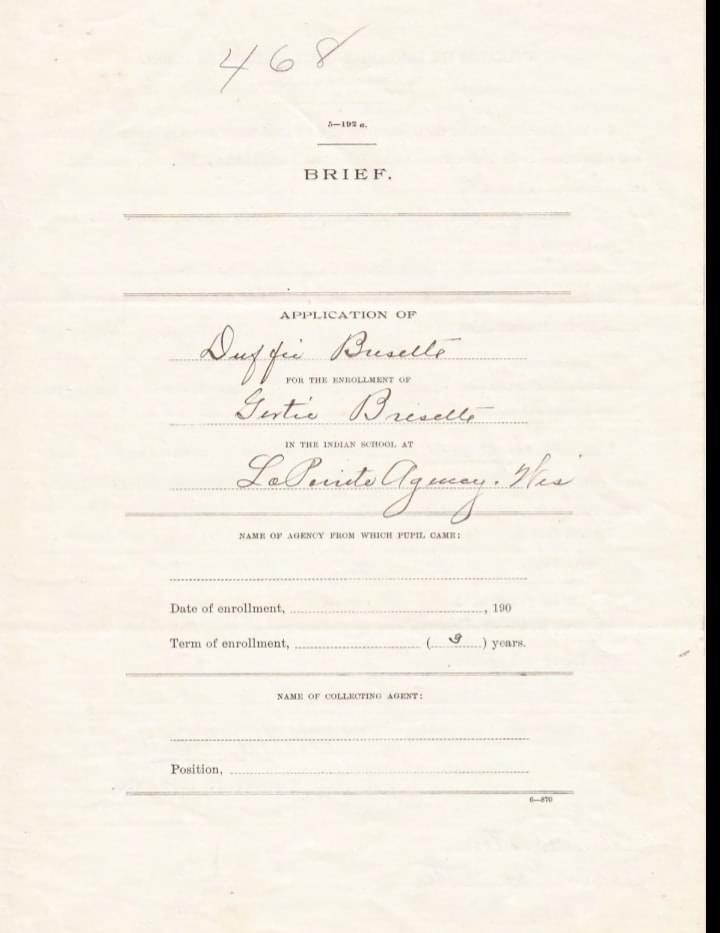 468
5—192 a.
BRIEF.
APPLICATION OF
Duffie Bresette
FOR THE ENROLLMENT OF
Gertie Bresette
IN THE INDIAN SCHOOL AT
La Pointe Agency. Wis
NAME OF AGENCY FROM WHICH PUPIL CAME:
Date of enrollment, , 190
Term of enrollment, ( 3 ) years.
NAME OF COLLECTING AGENT:
Position,
6—870